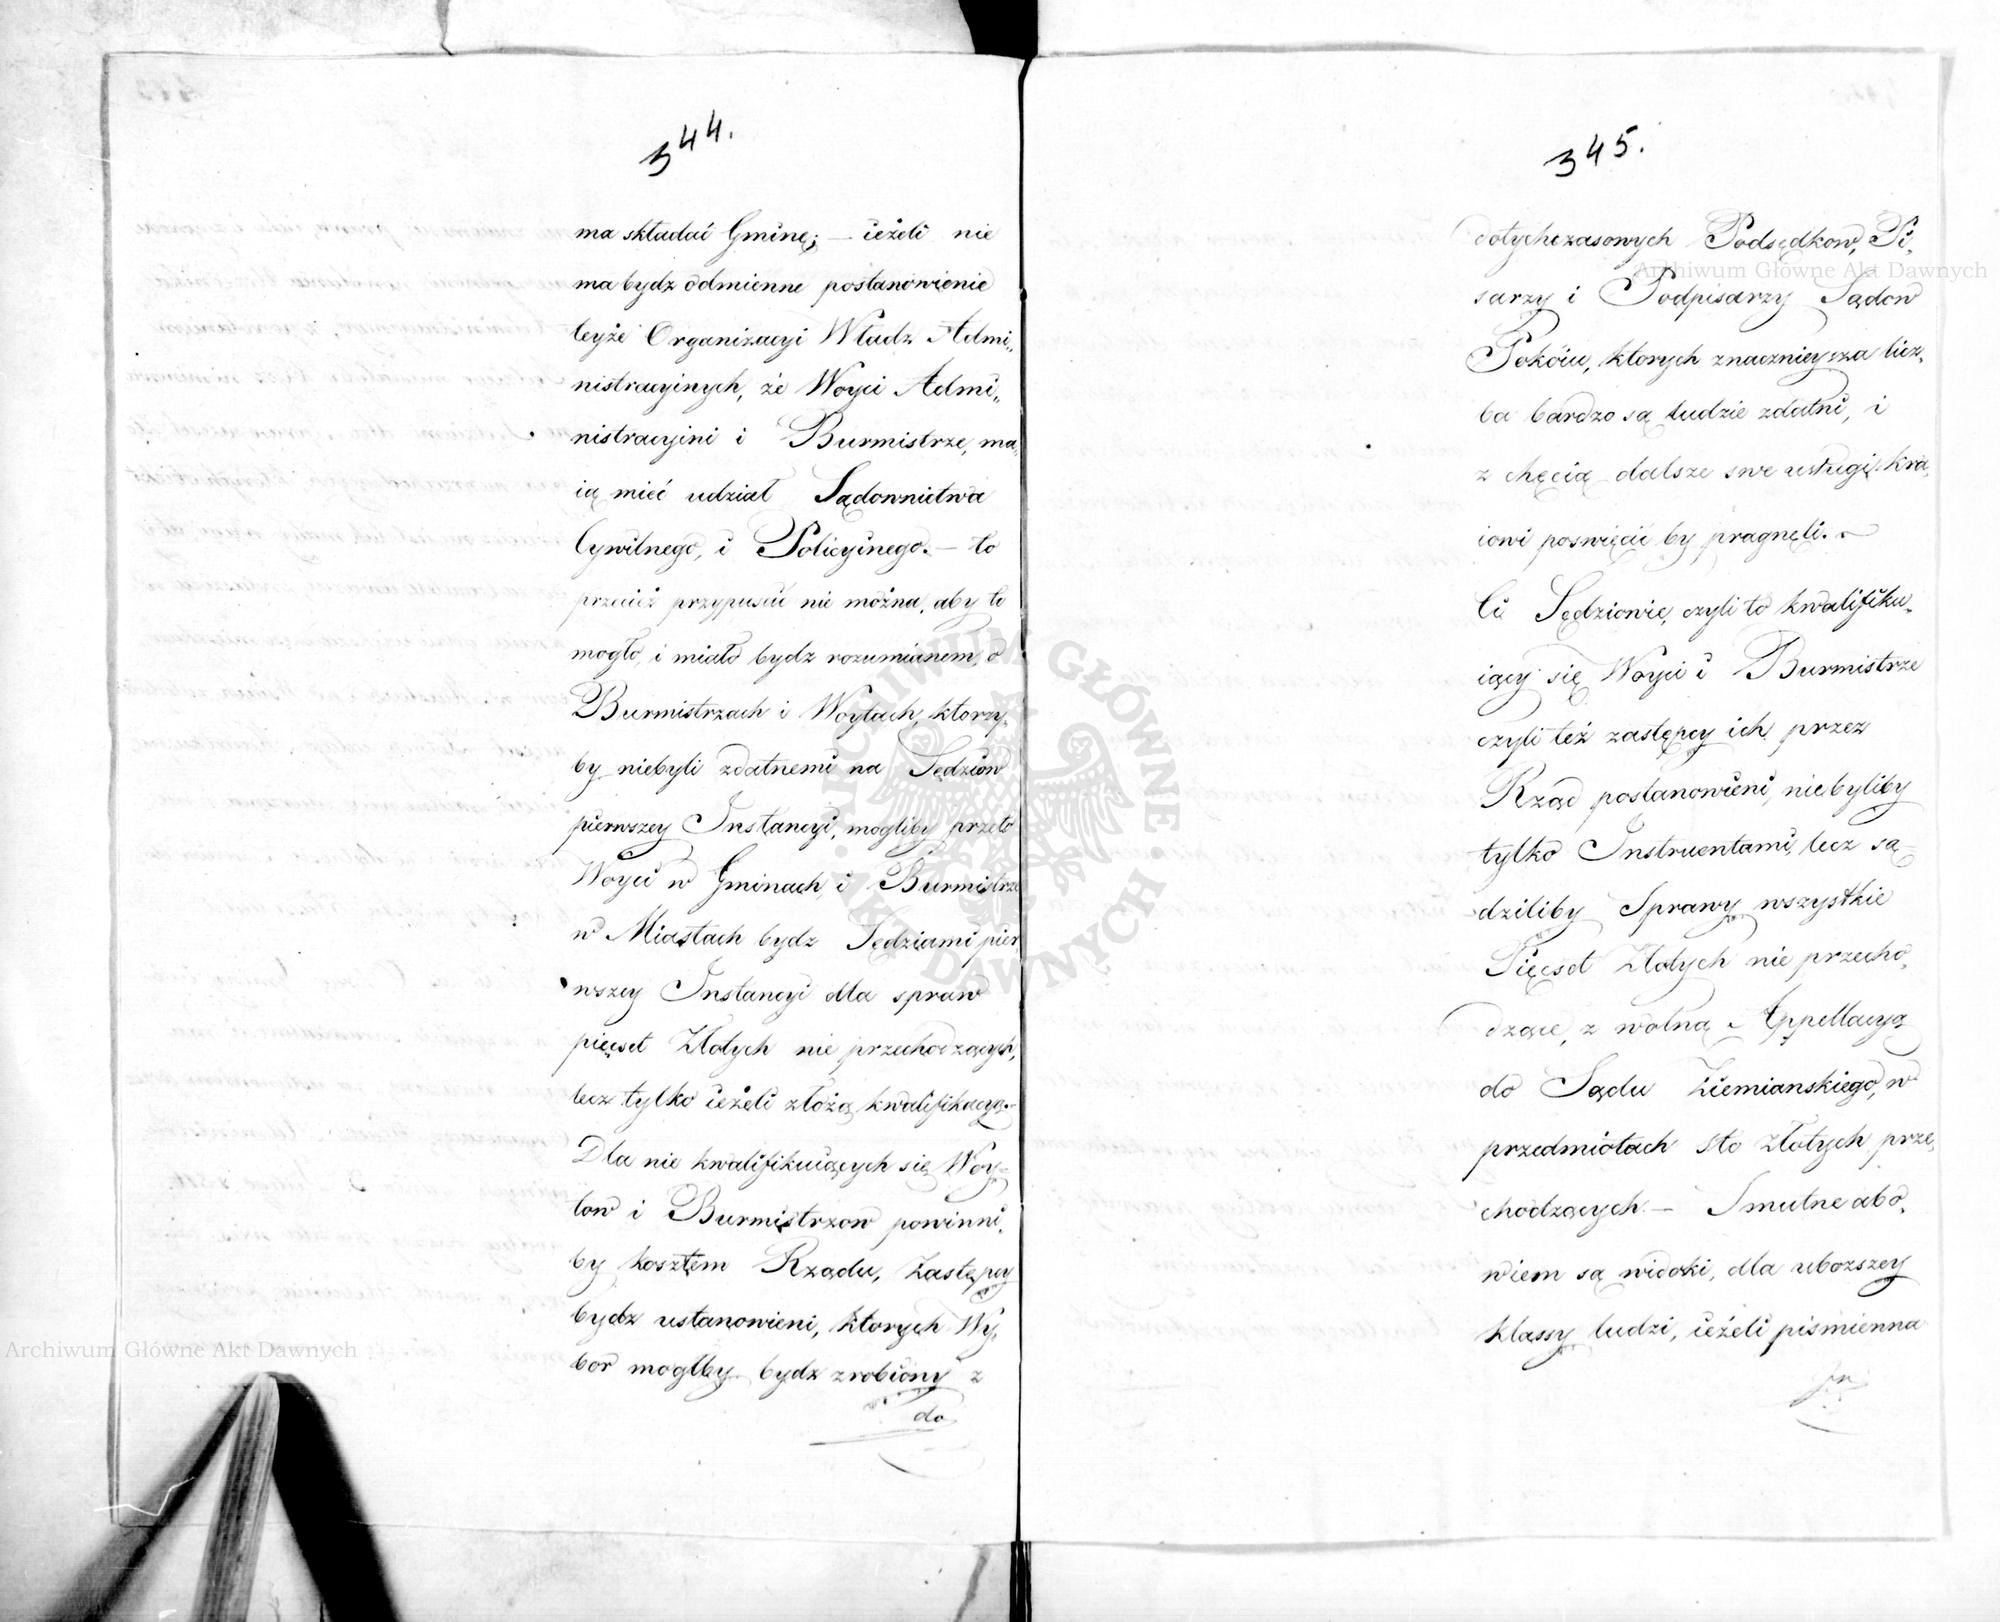 344.
ma składać Gminę; — ieżeli nie
ma bydz odmienne postanowienie
teyże Organizacyi Władz Admi„
nistracyinych, że Woyci Admi„
nistracyini i Burmistrze, ma„
ią mieć udział Sądownictwa
Cywilnego, i Policyinego. — to
przecież przypuścić nie można, aby to
mogło, i miało bydz rozumianem, o
Burmistrzach i Woytach, ktorzy„
by niebyli zdatnemi na Sędziow
pierwszey Instancyi, mogliby przeto
Woyci w Gminach, i Burmistrze
w Miastach bydz Sędziami pier„
wszey Instancyi dla spraw
pięcset Złotych nie przechodzących,
lecz tylko ieżeli złożą kwalifikacyą. —
Dla nie kwalifikuiących się Woy„
tow i Burmistrzow powinni„
by kosztem Rządu, Zastępcy
bydz ustanowieni, ktorych Wy„
bor mogłby bydz zrobiony z
do
345.
dotychczasowych Podsędkow, Pi„
sarzy i Podpisarzy Sądow
Pokoiu, ktorych znacznieysza licz„
ba bardzo są ludzie zdatni, i
z chęcią dalsze swe usługi kra„
iowi poswięcić by pragnęli. ~
Ci Sędziowie, czyli to kwalifiku„
iący się Woyci i Burmistrze
czyli też zastępcy ich przez
Rząd postanowieni, niebyliby
tylko Instruentami, lecz są„
dziliby Sprawy wszystkie
Pięcset Złotych nie przecho„
dzące, z wolną Appellacyą
do Sądu Ziemianskiego, w
przedmiotach sto złotych prze„
chodzących. — Smutne abo„
wiem są widoki, dla uboższey
klassy ludzi, ieżeli piśmienna
Archiwum Główne Akt Dawnych
Archiwum Główne Akt Dawnych
ARCHIWUM GŁÓWNE AKT DAWNYCH